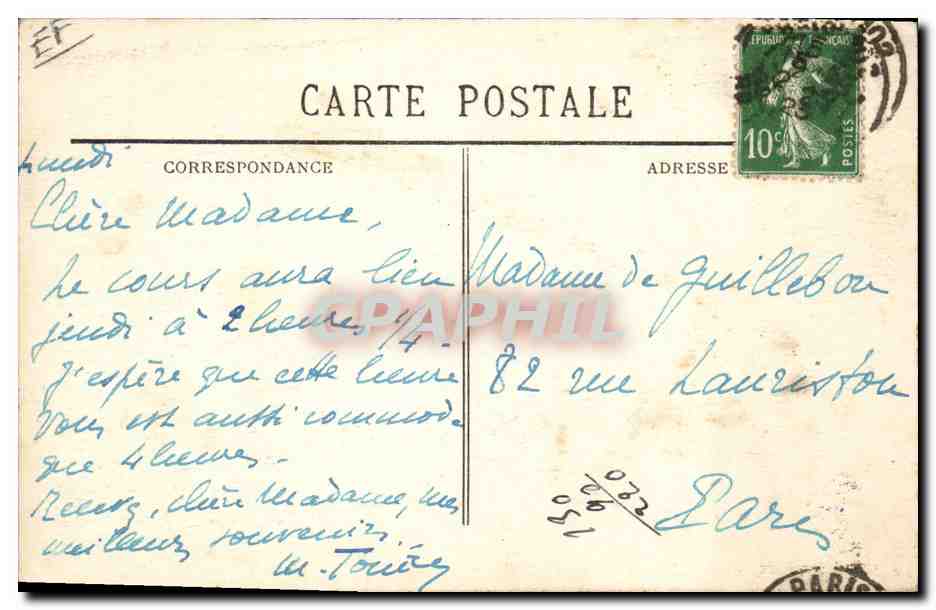 EF
CARTE POSTALE
RÉPUBLIQUE FRANÇAISE
10c POSTES
CORRESPONDANCE
ADRESSE
Lundi
Chère Madame,
Le cours aura lieu
jeudi à 2 heures 1/4.
J'espère que cette heure
vous est aussi commode
que 4 heures.
Recevez, chère Madame, mes
meilleurs souvenirs.
M.
Madame de Guillebon
82 rue Lauriston
Paris
CPAPHIL
PARIS